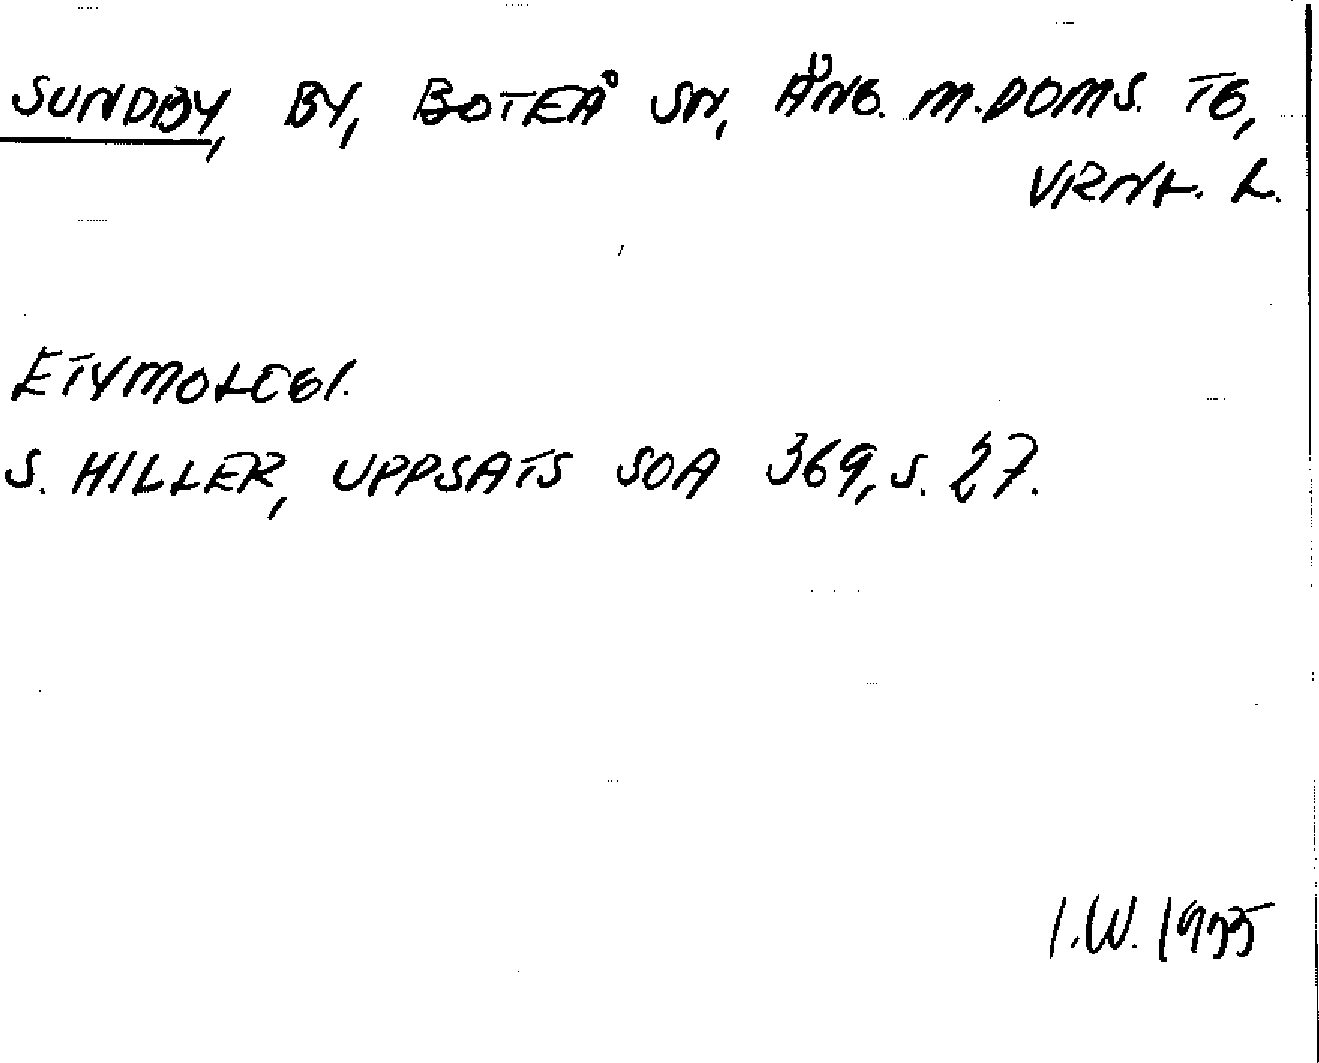 SUNDBY, BY, BOTEÅ SN, ÅNG. M. DOMS. TG,
VRNL. L.
ETYMOLOGI.
S. HILLER, UPPSATS SOA 369, S. 27.
I.W.